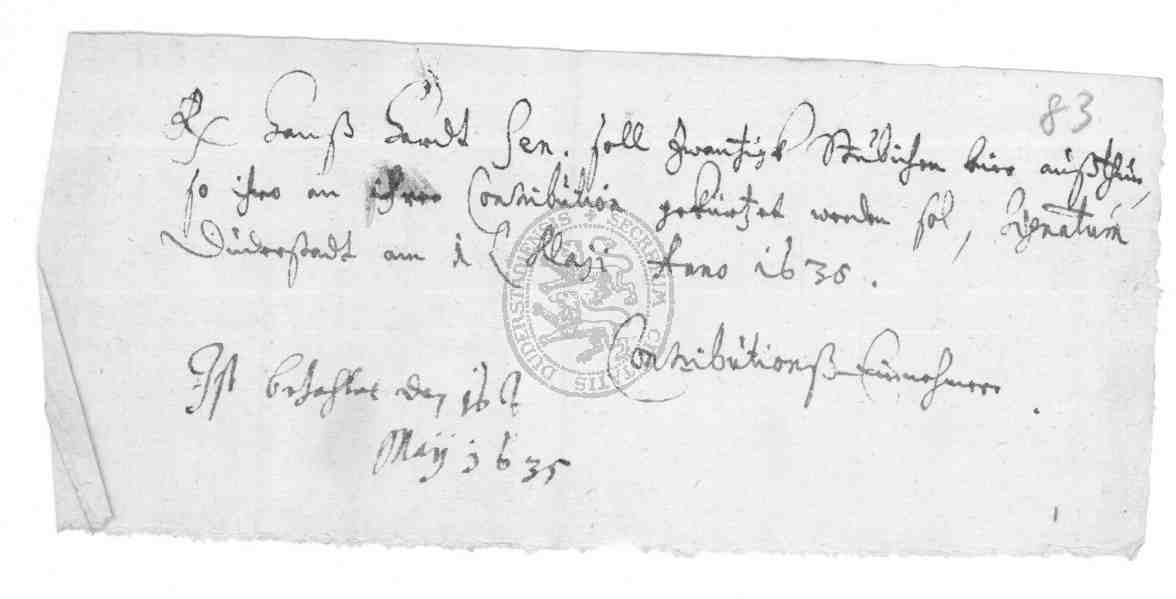 83
Hanß Hardt Sen. soll zwantzigk Stübichen bier außthun,
so ihro an ihrer Contribution gekürtzet werden sol, Signatum
Duderstadt am 1 Maji Anno 1635.
Contributionß-Einnehmere.
Ist bezahlet den 16 t
Maÿ 1635
SECRETUM CIVITATIS DUDERSTADENSIS